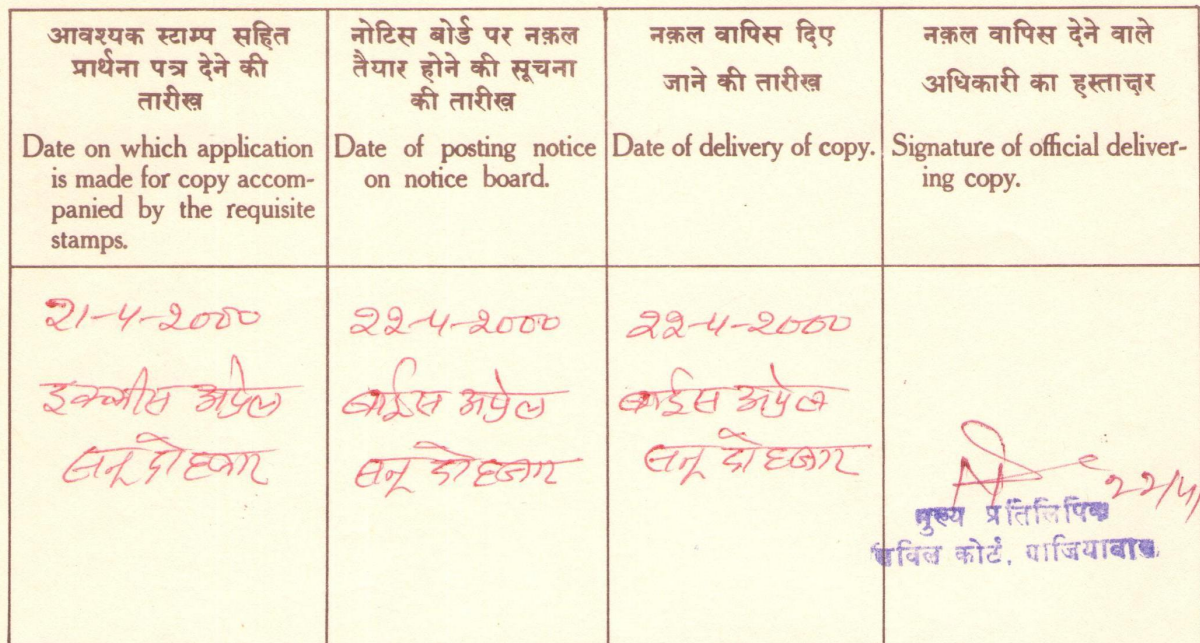 आवश्यक स्टाम्प सहित
प्रार्थना पत्र देने की
तारीख
Date on which application
is made for copy accom-
panied by the requisite
stamps.
नोटिस बोर्ड पर नक़ल
तैयार होने की सूचना
की तारीख
Date of posting notice
on notice board.
नक़ल वापिस दिए
जाने की तारीख
Date of delivery of copy.
नक़ल वापिस देने वाले
अधिकारी का हस्ताक्षर
Signature of official deliver-
ing copy.
२१-४-२०००
इक्कीस अप्रेल
सन् दो हजार
२२-४-२०००
बाईस अप्रेल
सन् दो हजार
२२-४-२०००
बाईस अप्रेल
सन् दो हजार
२२/४
मुख्य प्रतिलिपिक
सिविल कोर्ट, गाजियाबाद